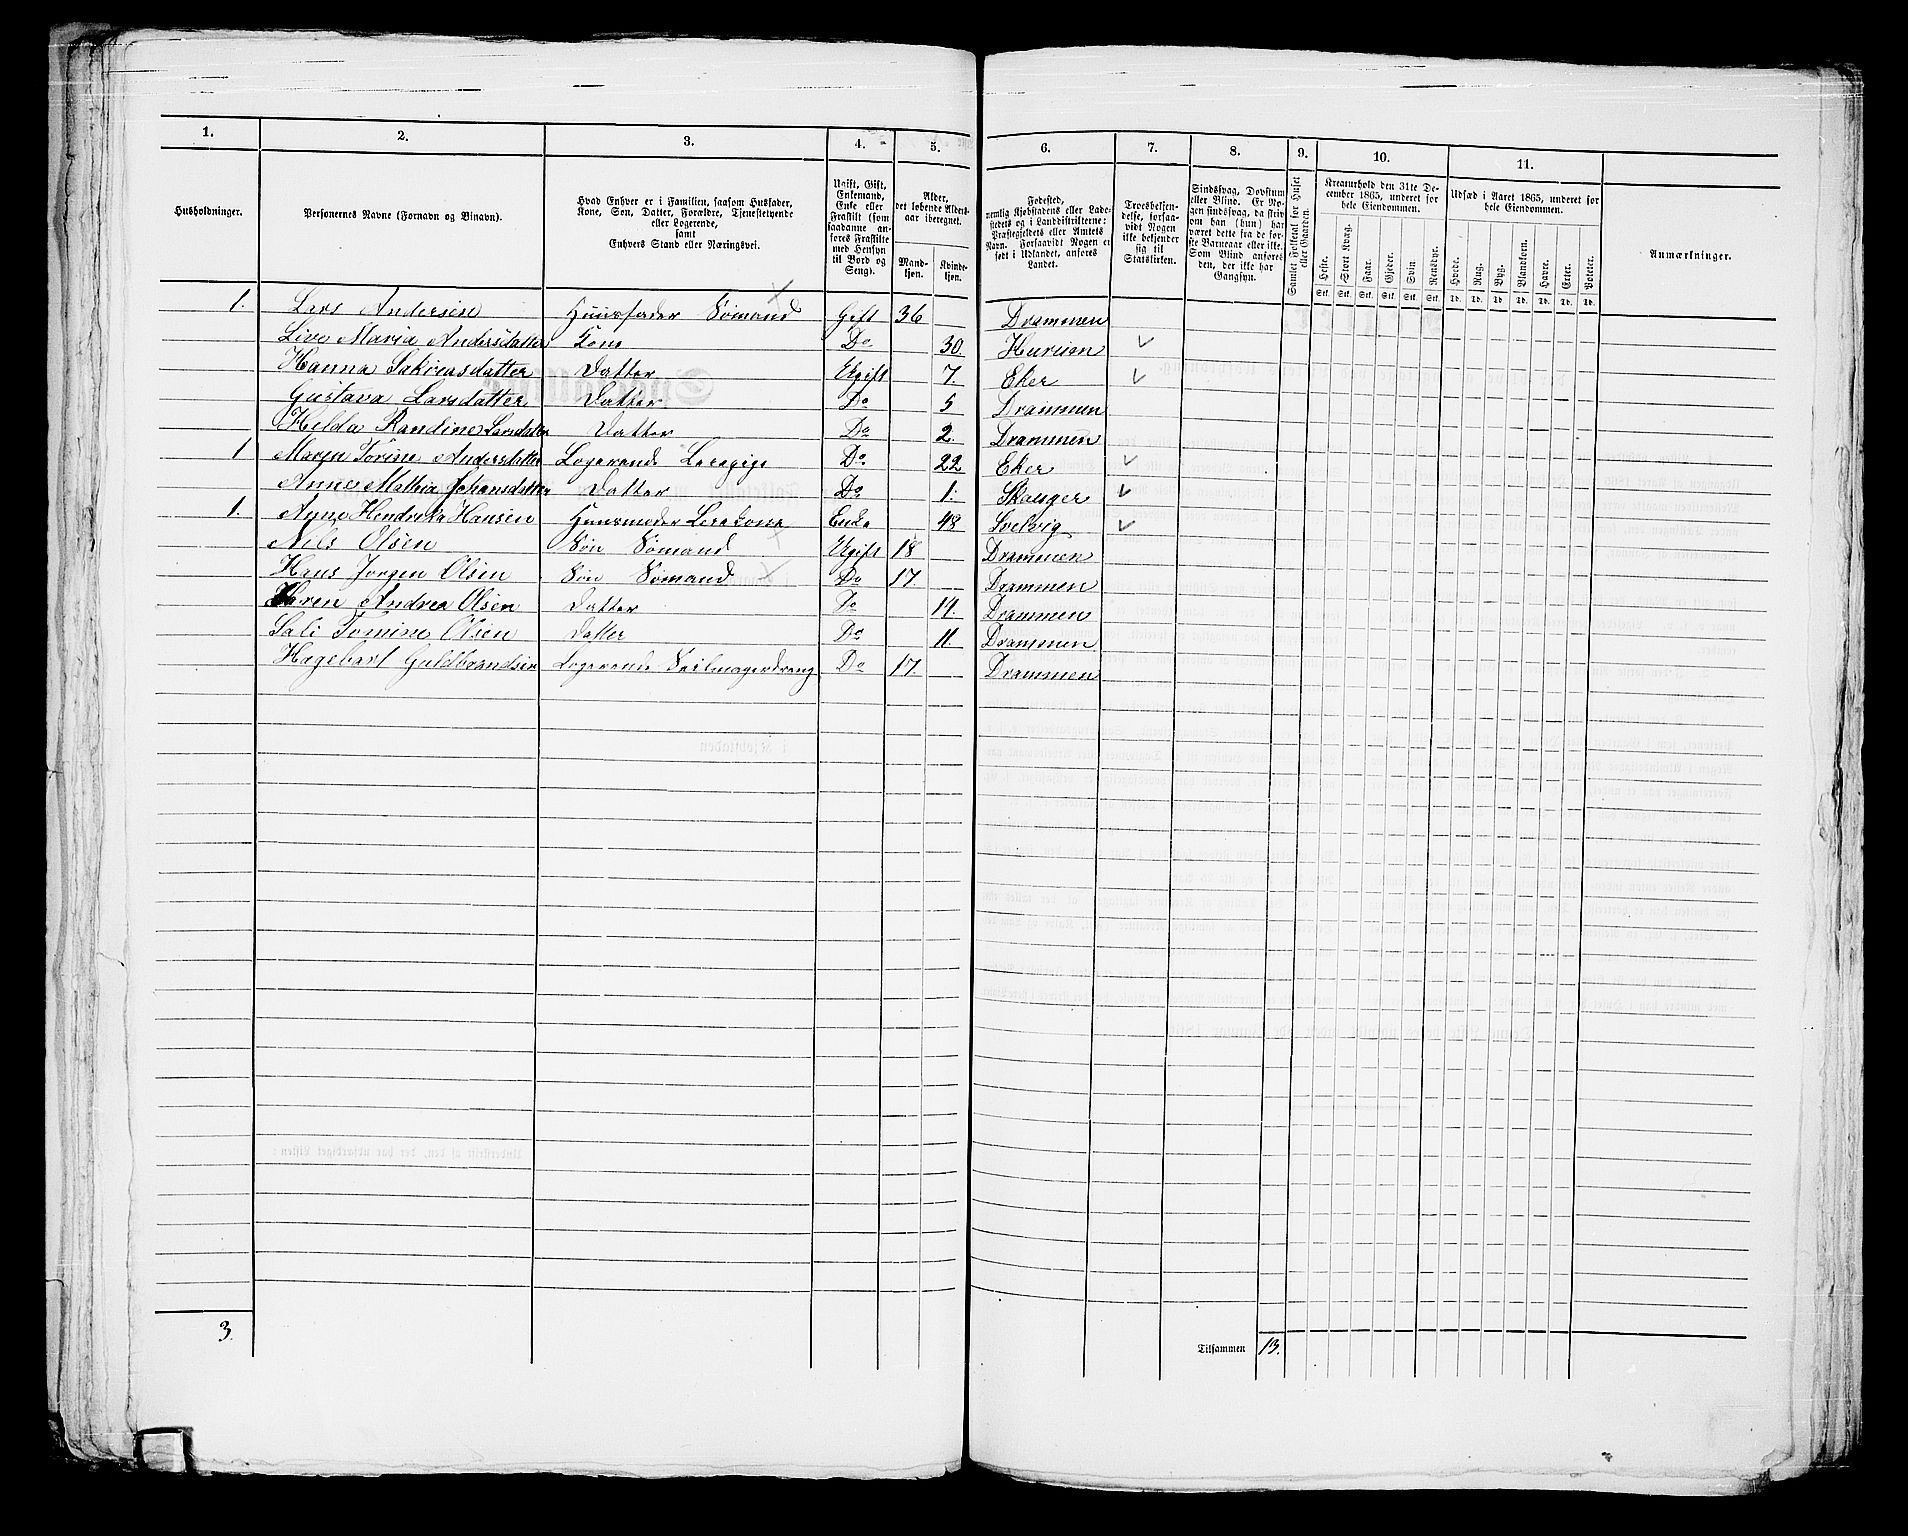 1. 2. 3. 4. 5. 6. 7. 8. 9. 10. 11.
Husholdninger.
Personernes Navne (Fornavn og Binavn).
Hvad Enhver er i Familien, saasom Husfader,
Kone, Søn, Datter, Forældre, Tjenestetyende
eller Logerende,
samt
Enhvers Stand eller Næringsvei.
Ugift, Gift,
Enkemand,
Enke eller
Fraskilt (som
saadanne an-
føres Fraskilte
med Hensyn
til Bord og
Seng).
Alder,
det løbende Alders-
aar iberegnet.
Mand-
kjøn.
Kvinde-
kjøn.
Fødested,
nemlig Kjøbstadens eller Lade-
stedets og i Landdistrikterne:
Præstegjeldets eller Amtets
Navn. Forsaavidt Nogen er
født i Udlandet, anføres
Landet.
Troesbekjen-
delse, forsaa-
vidt Nogen
ikke bekjender
sig til
Statskirken.
Sindssvag, Døvstum
eller Blind. Er No-
gen sindssvag, da skriv
om han (hun) har
været dette fra de før-
ste Barneaar eller ikke.
Som Blind anføres
den, der ikke har
Gangsyn.
Samlet Folketal for Huset
eller Gaarden.
Kreaturhold den 31te De-
cember 1865, underet for
hele Eiendommen.
Heste. Stort Kvæg. Faar. Gjeder. Svin. Rensdyr.
Stk. Stk. Stk. Stk. Stk. Stk.
Udsæd i Aaret 1865, underet for
hele Eiendommen.
Hvede. Rug. Byg. Blandkorn. Havre. Erter. Poteter.
Td. Td. Td. Td. Td. Td. Td.
Anmærkninger.
1. Lars Andersen Huusfader Sømand Gift 36 Drammen
Live Maria Andersdatter Kone Do 30. Hurum
Hanna Sakreasdatter Datter Ugift 7. Eker
Gustava Larsdatter Datter Do 5 Drammen
Helda Randine Larsdatter Datter Do 2. Drammen
1 Maren Torine Andersdatter Logerende Do 22 Eker
Anne Mathia Johansdatter Datter Do 1. Skauger
1. Anne Hendrika Hansen Huusmoder Enke 48 Svelvig
Nils Olsen Søn Sømand Ugift 18 Drammen
Hans Jørgen Olsen Søn Sømand Do 17 Drammen
Karen Andrea Olsen Datter Do 14. Drammen
Sali Tomine Olsen Datter Do 11 Drammen
Hagebart Guldbrandsen Logerende Seilmagerdreng Do 17. Drammen
3.
Tilsammen 13.